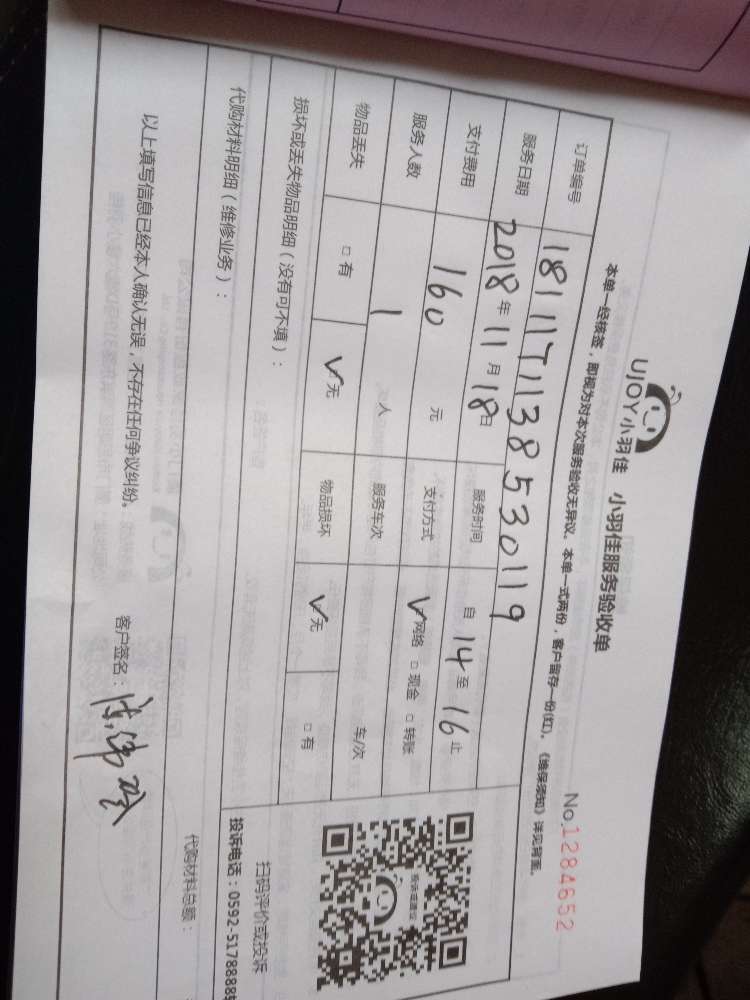 UJOY小羽佳 小羽佳服务验收单
No.1284652
本单一经核签，即视为对本次服务验收无异议。本单一式两份，客户留存一份(红)。《维保须知》详见背面。
订单编号 181117113853 0119
服务日期 2018年11月18日 服务时间 自14至16止
支付费用 160 元 支付方式 ✓网络 □现金 □转账
服务人数 1 人 服务车次 车/次
物品丢失 □有 ✓无 物品损坏 ✓无 □有
损坏或丢失物品明细（没有可不填）：
投诉或建议
扫码评价或投诉
投诉电话：0592-5178888
代购材料明细（维修业务）：
代购材料总额：
以上填写信息已经本人确认无误，不存在任何争议纠纷。 客户签名：